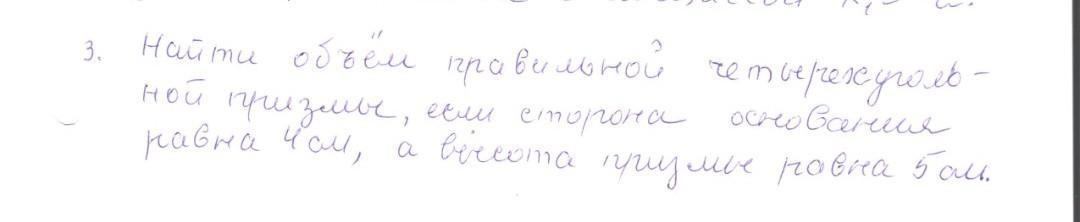 3. Найти объём правильной четырехуголь-
ной призмы, если сторона основания
равна 4 см, а высота призмы равна 5 см.